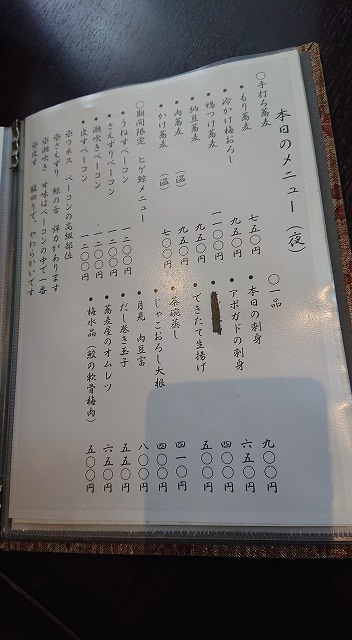 本日のメニュー（夜）
〇手打ち蕎麦
・もり蕎麦 七五〇円
・冷かけ梅おろし 九五〇円
・鴨つけ蕎麦 一一〇〇円
・納豆蕎麦 九五〇円
・肉蕎麦（温） 九五〇円
・かけ蕎麦（温） 七〇〇円
〇期間限定 ヒゲ鯨メニュー
・うねすベーコン 一二〇〇円
・さえずりベーコン 一二〇〇円
・潮吹きベーコン 一二〇〇円
・皮すベーコン 一二〇〇円
※ウネス ベーコンの高級部位
※さえずり 鯨の舌 弾力があります
※潮吹き 甘味はベーコンの中で一番
※皮す 脂田りで、やわらかいです
〇一品
・本日の刺身 九〇〇円
・アボガドの刺身 六五〇円
・ 四〇〇円
・できたて生揚げ 五〇〇円
・茶碗蒸し 四一〇円
・じゃこおろし大根 四〇〇円
・月見 肉豆富 八〇〇円
・だし巻き玉子 五五〇円
・蕎麦屋のオムレツ 六五〇円
・梅水晶（鮫の軟骨梅肉） 五〇〇円